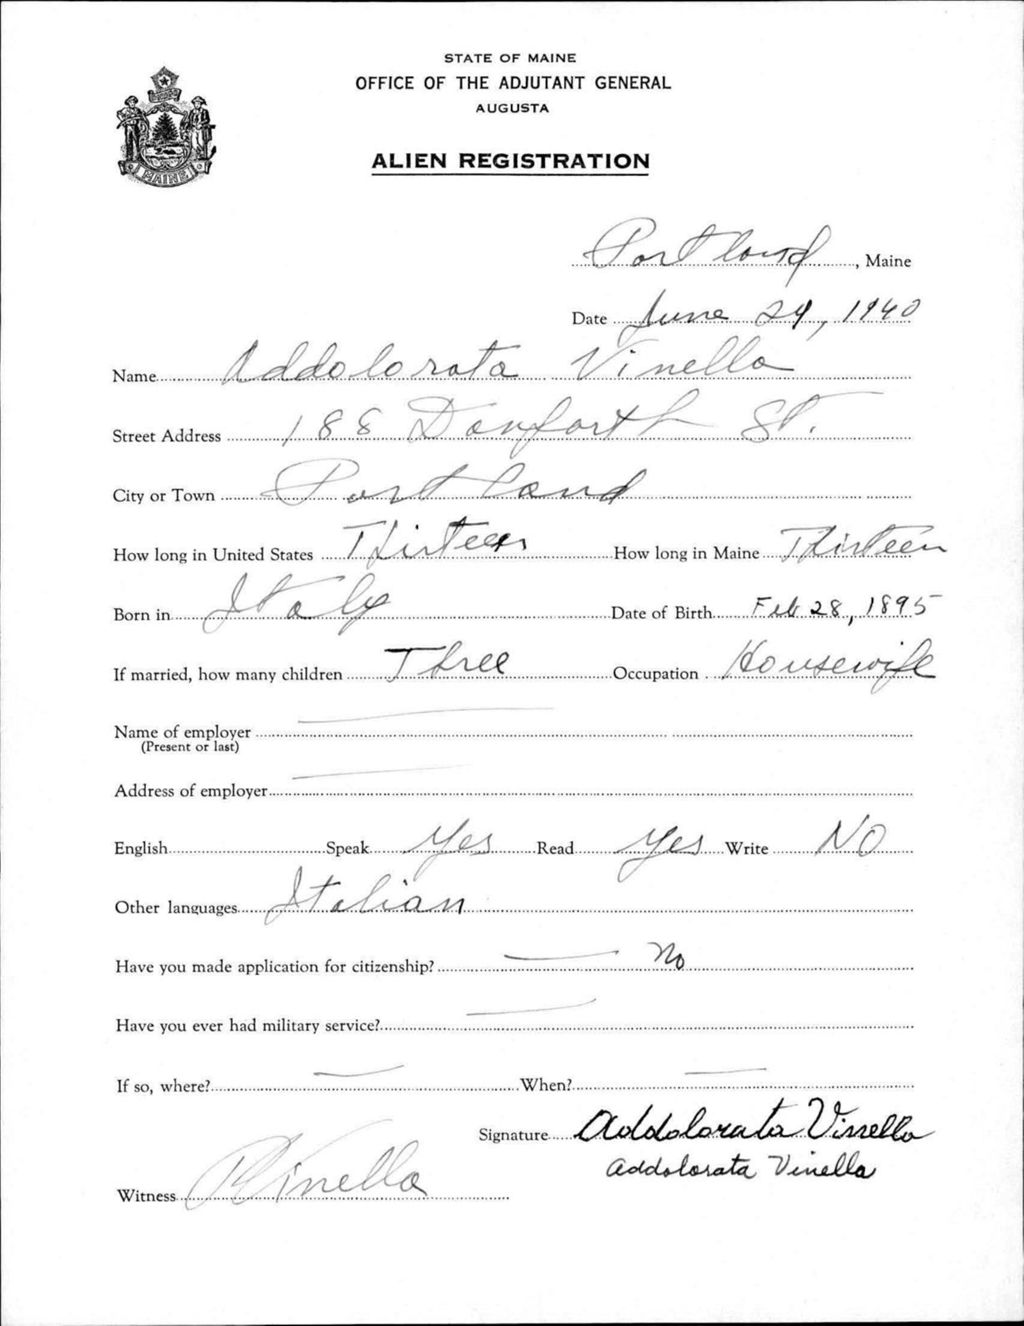 STATE OF MAINE
OFFICE OF THE ADJUTANT GENERAL
AUGUSTA
MAINE
ALIEN REGISTRATION
Portland, Maine
Date June 24, 1940
Name Addolorata Vinella
Street Address 188 Danforth St.
City or Town Portland
How long in United States Thirteen How long in Maine Thirteen
Born in Italy Date of Birth Feb 28, 1895
If married, how many children Three Occupation Housewife
Name of employer
(Present or last)
Address of employer
English Speak Yes Read Yes Write NO
Other languages Italian
Have you made application for citizenship? No
Have you ever had military service?
If so, where? When?
Signature Addolorata Vinella
Addolorata Vinella
Witness Vinella